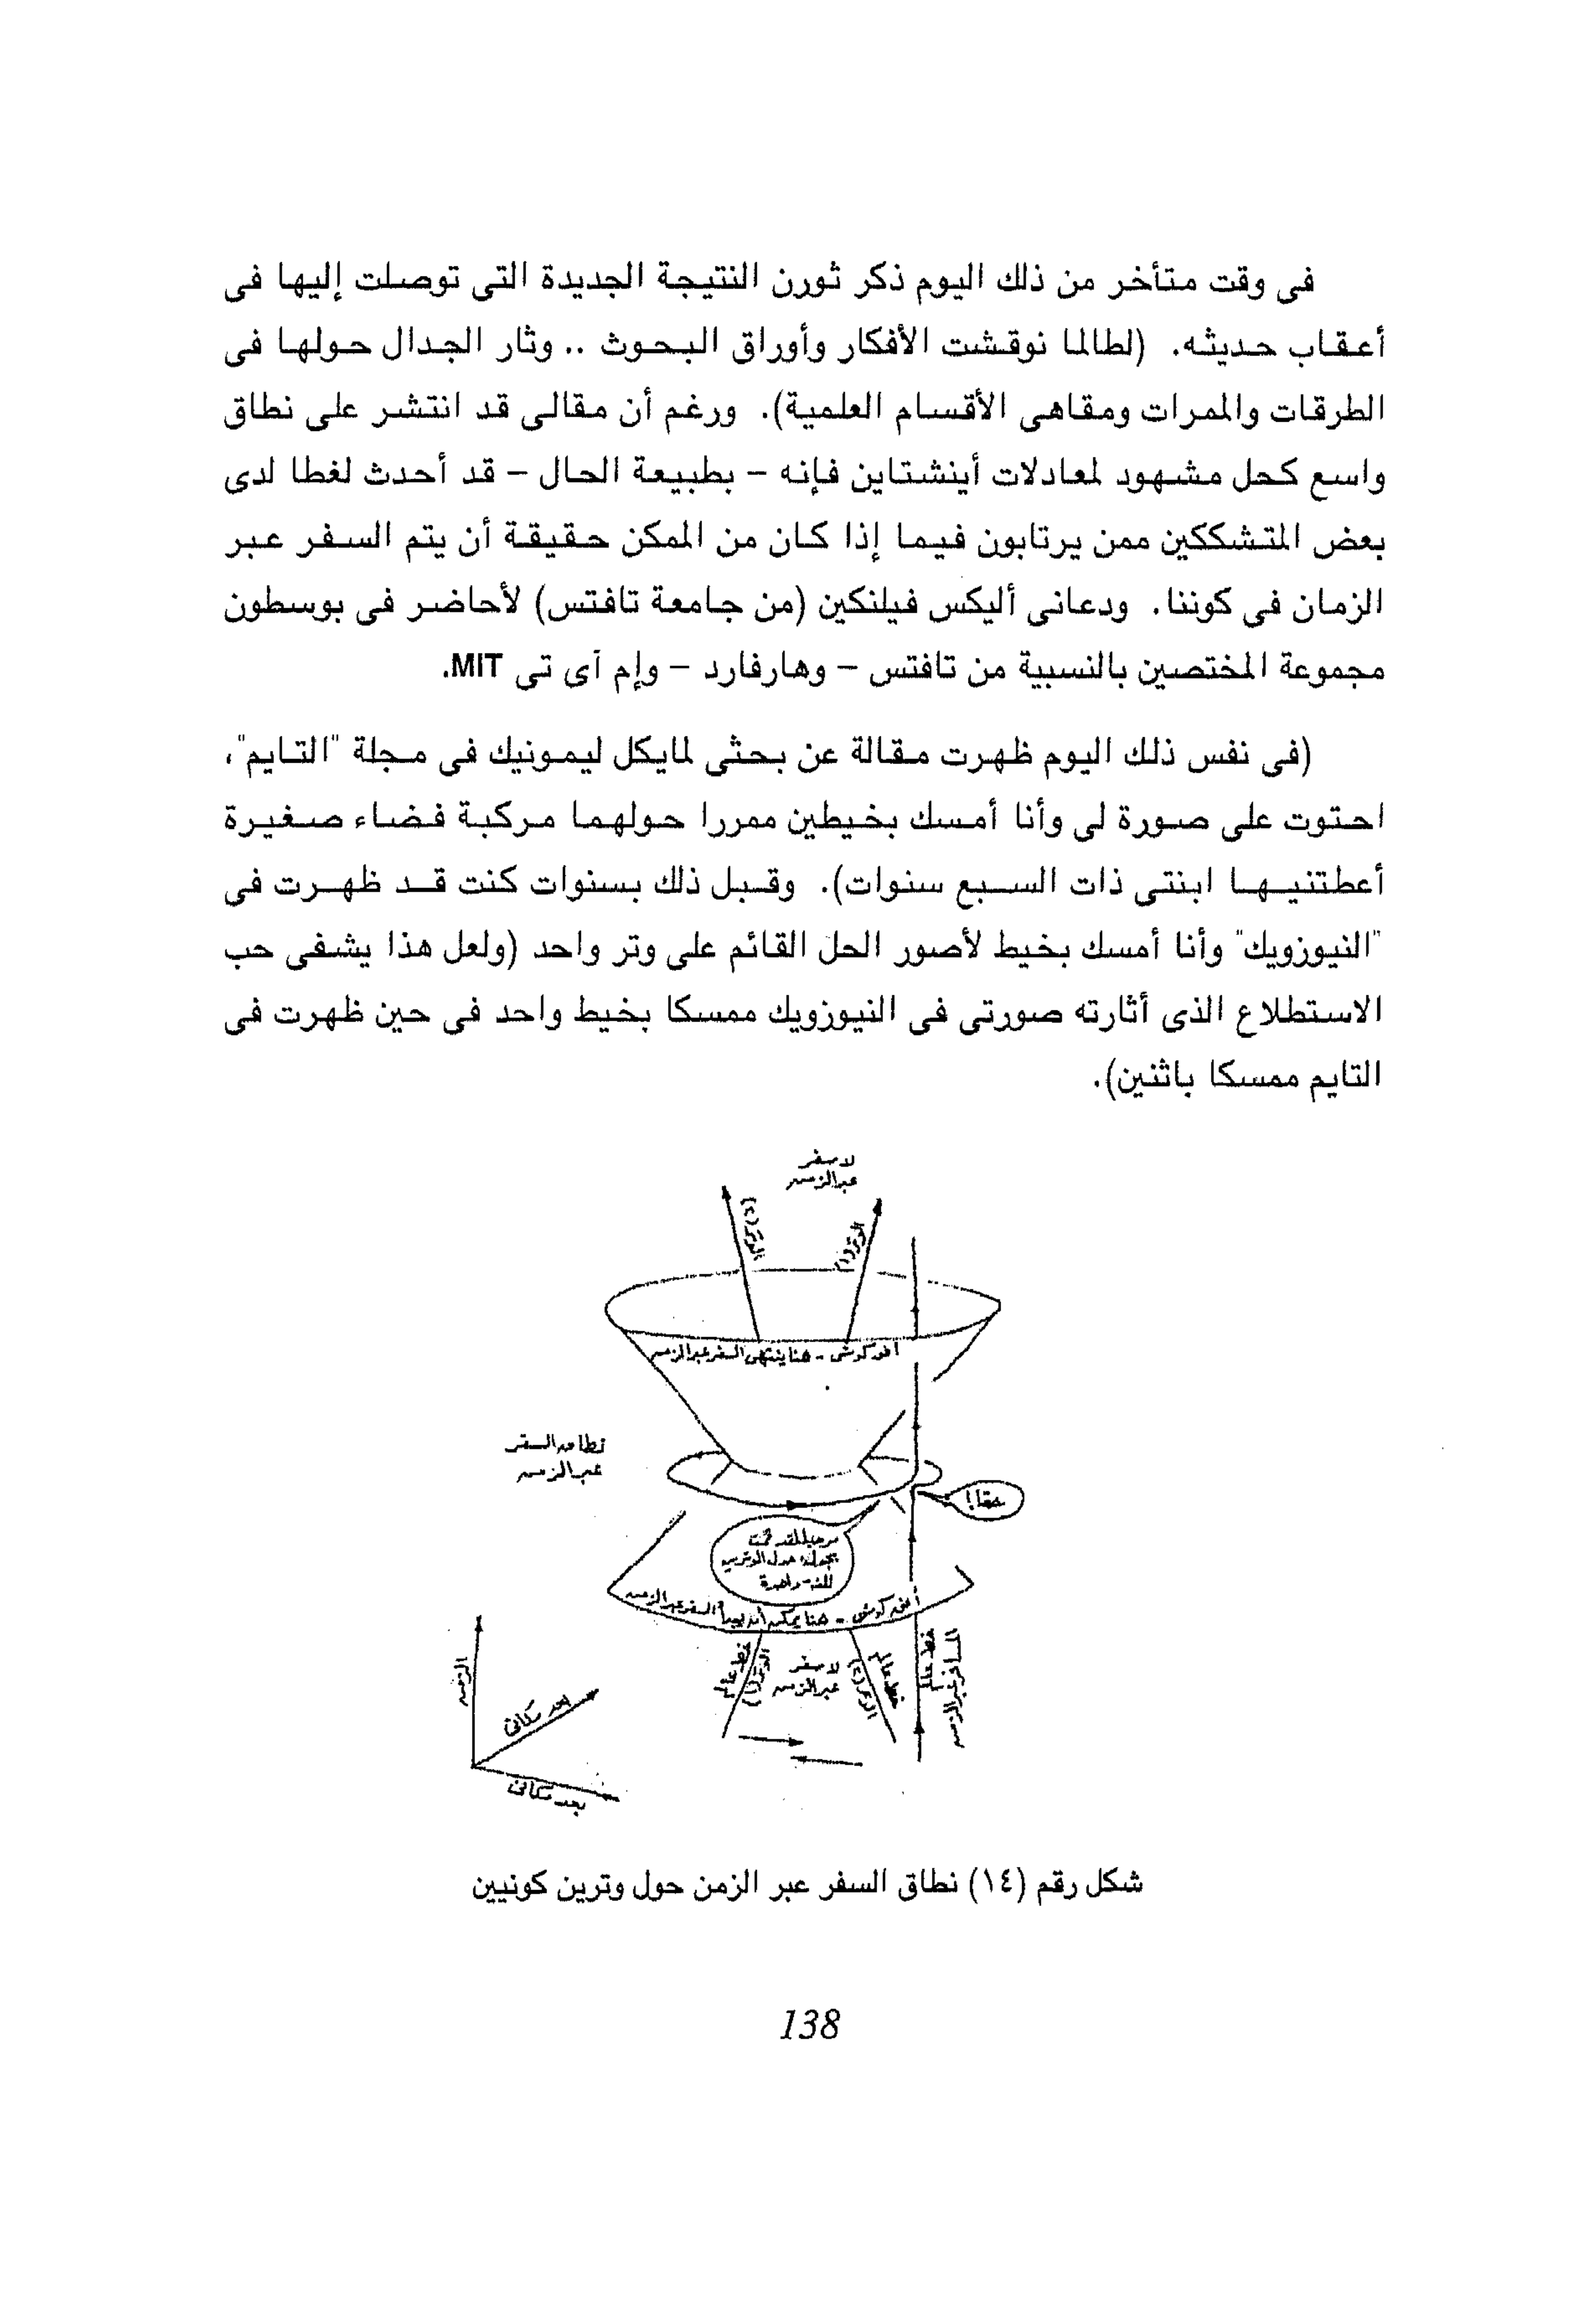 فى وقت متأخر من ذلك اليوم ذكر ثورن النتيجة الجديدة التى توصلت إليها فى
أعقاب حديثه. (لطالما نوقشت الأفكار وأوراق البحوث .. وثار الجدال حولها فى
الطرقات والممرات ومقاهى الأقسام العلمية). ورغم أن مقالى قد انتشر على نطاق
واسع كحل مشهود لمعادلات أينشتاين فإنه – بطبيعة الحال – قد أحدث لغطا لدى
بعض المتشككين ممن يرتابون فيما إذا كان من الممكن حقيقة أن يتم السفر عبر
الزمان فى كوننا. ودعانى أليكس فيلنكين (من جامعة تافتس) لأحاضر فى بوسطون
مجموعة المختصين بالنسبية من تافتس – وهارفارد – وإم آى تى MIT.
(فى نفس ذلك اليوم ظهرت مقالة عن بحثى لمايكل ليمونيك فى مجلة "التايم"،
احتوت على صورة لى وأنا أمسك بخيطين ممررا حولهما مركبة فضاء صغيرة
أعطتنيها ابنتى ذات السبع سنوات). وقبل ذلك بسنوات كنت قد ظهرت فى
"النيوزويك" وأنا أمسك بخيط لأصور الحل القائم على وتر واحد (ولعل هذا يشفى حب
الاستطلاع الذى أثارته صورتى فى النيوزويك ممسكا بخيط واحد فى حين ظهرت فى
التايم ممسكا باثنين).
لا سفر
عبر الزمن
الوتر (٢)
الوتر (١)
أفق كوشى - هنا ينتهى السفر عبر الزمن
نطاق السفر
عبر الزمن
حقا!
مرحبا لقد قمت
بجولة حول الوترين
للمرة واحدة
أفق كوشى - هنا يمكن أن يبدأ السفر عبر الزمن
خط عالم
الوتر (١)
لا سفر
عبر الزمن
خط عالم
الوتر (٢)
خط عالم
المسافر عبر الزمن
الزمن
بعد مكانى
بعد مكانى
شكل رقم (١٤) نطاق السفر عبر الزمن حول وترين كونيين
138